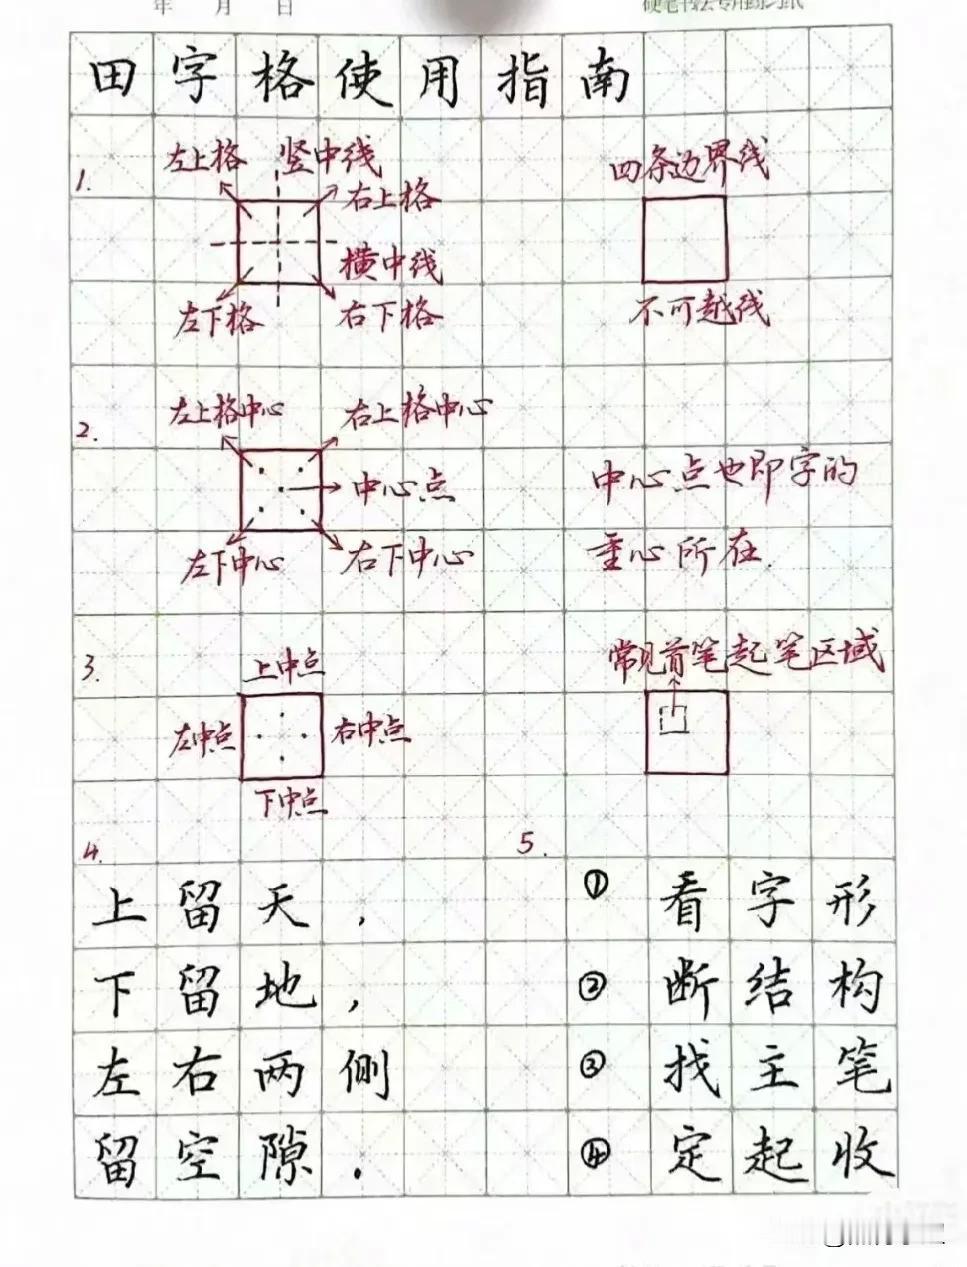 年 月 日
硬笔书法专用练习纸
田字格使用指南
1.
左上格 竖中线
右上格
横中线
左下格 右下格
四条边界线
不可越线
2.
左上格中心 右上格中心
中心点
左下中心 右下中心
中心点也即字的
重心所在.
3.
上中点
左中点 右中点
下中点
常见首笔起笔区域
4.
上留天，
下留地，
左右两侧
留空隙.
5.
① 看字形
② 断结构
③ 找主笔
④ 定起收